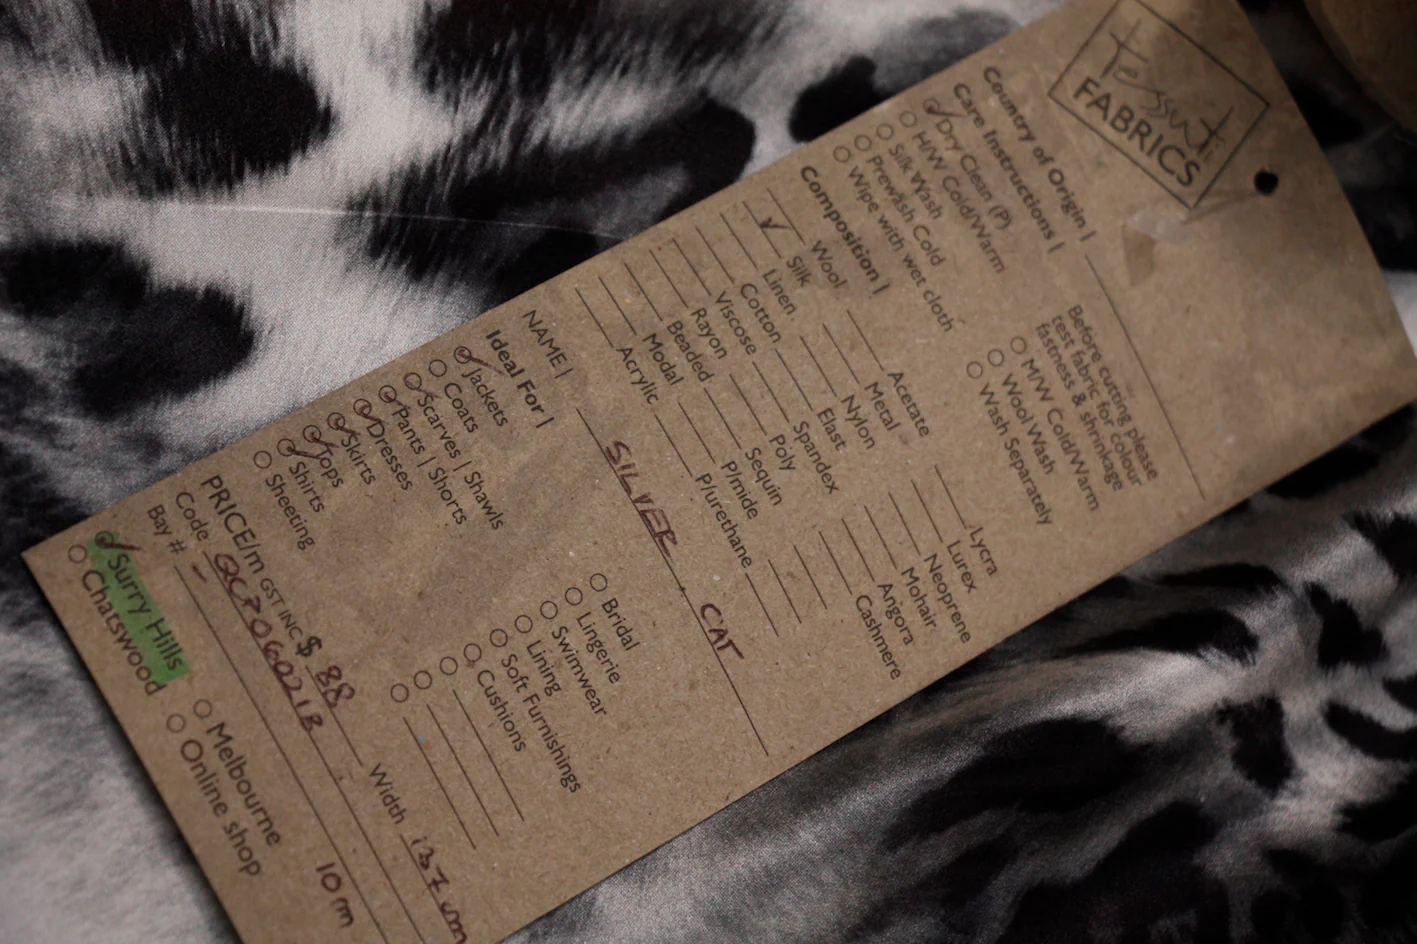 tessuti
FABRICS
Country of Origin |
Care Instructions |
Dry Clean (P)
H/W Cold/Warm
Silk Wash
Prewash Cold
Wipe with wet cloth
Before cutting please
test fabric for colour
fastness & shrinkage
M/W Cold/Warm
Wool Wash
Wash Separately
Composition |
Wool
Silk
Linen
Cotton
Viscose
Rayon
Beaded
Modal
Acrylic
Acetate
Metal
Nylon
Elast
Spandex
Poly
Sequin
P/mide
P/urethane
Lycra
Lurex
Neoprene
Mohair
Angora
Cashmere
NAME | SILVER CAT
Ideal For |
Jackets
Coats
Scarves | Shawls
Pants | Shorts
Dresses
Skirts
Tops
Shirts
Sheeting
Bridal
Lingerie
Swimwear
Lining
Soft Furnishings
Cushions
PRICE/m GST INC $ 88 Width 137 cm
Code
Bay # - 10m
Surry Hills
Chatswood
Melbourne
Online shop